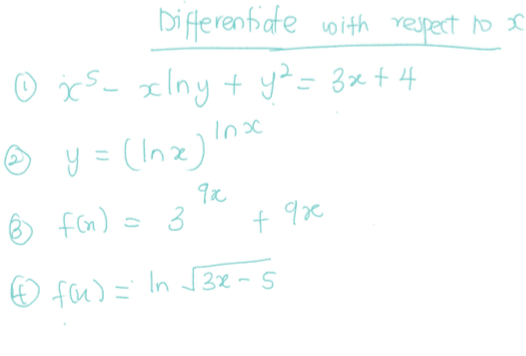 Differentiate with respect to x
① x⁵ - xlny + y² = 3x + 4
② y = (lnx)^lnx
③ f(x) = 3^9x + 9x
④ f(x) = ln √3x - 5